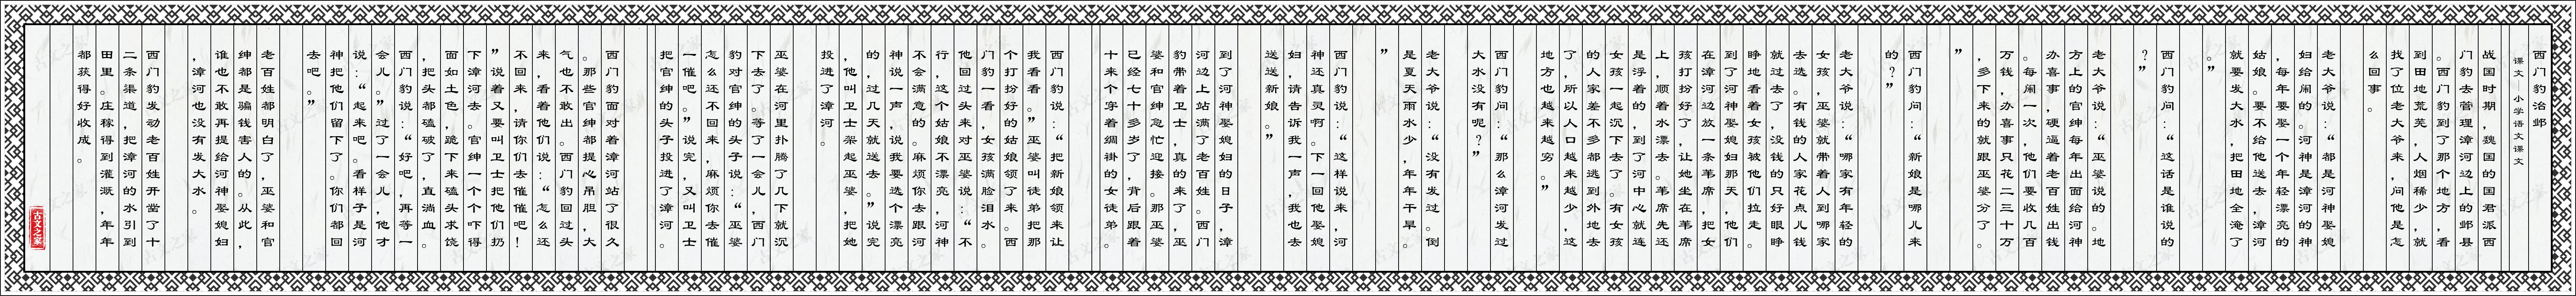 西门豹治邺
课文—小学语文课文
战国时期，魏国的国君派西
门豹去管理漳河边上的邺县
。西门豹到了那个地方，看
到田地荒芜，人烟稀少，就
找了位老大爷来，问他是怎
么回事。
老大爷说：“都是河神娶媳
妇给闹的。河神是漳河的神
，每年要娶一个年轻漂亮的
姑娘。要不给他送去，漳河
就要发大水，把田地全淹了
。”
西门豹问：“这话是谁说的
？”
老大爷说：“巫婆说的。地
方上的官绅每年出面给河神
办喜事，硬逼着老百姓出钱
。每闹一次，他们要收几百
万钱，办喜事只花二三十万
，多下来的就跟巫婆分了。
”
西门豹问：“新娘是哪儿来
的？”
老大爷说：“哪家有年轻的
女孩，巫婆就带着人到哪家
去选。有钱的人家花点儿钱
就过去了，没钱的只好眼睁
睁地看着女孩被他们拉走。
到了河神娶媳妇那天，他们
在漳河边放一条苇席，把女
孩打扮好了，让她坐在苇席
上，顺着水漂去。苇席先还
是浮着的，到了河中心就连
女孩一起沉下去了。有女孩
的人家差不多都逃到外地去
了，所以人口越来越少，这
地方也越来越穷。”
西门豹问：“那么漳河发过
大水没有呢？”
老大爷说：“没有发过。倒
是夏天雨水少，年年干旱。
”
西门豹说：“这样说来，河
神还真灵啊。下一回他娶媳
妇，请告诉我一声，我也去
送送新娘。”
到了河神娶媳妇的日子，漳
河边上站满了老百姓。西门
豹带着卫士，真的来了，巫
婆和官绅急忙迎接。那巫婆
已经七十多岁了，背后跟着
十来个穿着绸褂的女徒弟。
西门豹说：“把新娘领来让
我看看。”巫婆叫徒弟把那
个打扮好的姑娘领了来。西
门豹一看，女孩满脸泪水。
他回过头来对巫婆说：“不
行，这个姑娘不漂亮，河神
不会满意的。麻烦你去跟河
神说一声，说我要选个漂亮
的，过几天就送去。”说完
，他叫卫士架起巫婆，把她
投进了漳河。
巫婆在河里扑腾了几下就沉
下去了。等了一会儿，西门
豹对官绅的头子说：“巫婆
怎么还不回来，麻烦你去催
一催吧。”说完，又叫卫士
把官绅的头子投进了漳河。
西门豹面对着漳河站了很久
。那些官绅都提心吊胆，大
气也不敢出。西门豹回过头
来，看着他们说：“怎么还
不回来，请你们去催催吧！
”说着又要叫卫士把他们扔
下漳河去。官绅一个个吓得
面如土色，跪下来磕头求饶
，把头都磕破了，直淌血。
西门豹说：“好吧，再等一
会儿。”过了一会儿，他才
说：“起来吧。看样子是河
神把他们留下了。你们都回
去吧。”
老百姓都明白了，巫婆和官
绅都是骗钱害人的。从此，
谁也不敢再提给河神娶媳妇
，漳河也没有发大水。
西门豹发动老百姓开凿了十
二条渠道，把漳河的水引到
田里。庄稼得到灌溉，年年
都获得好收成。
古文之家